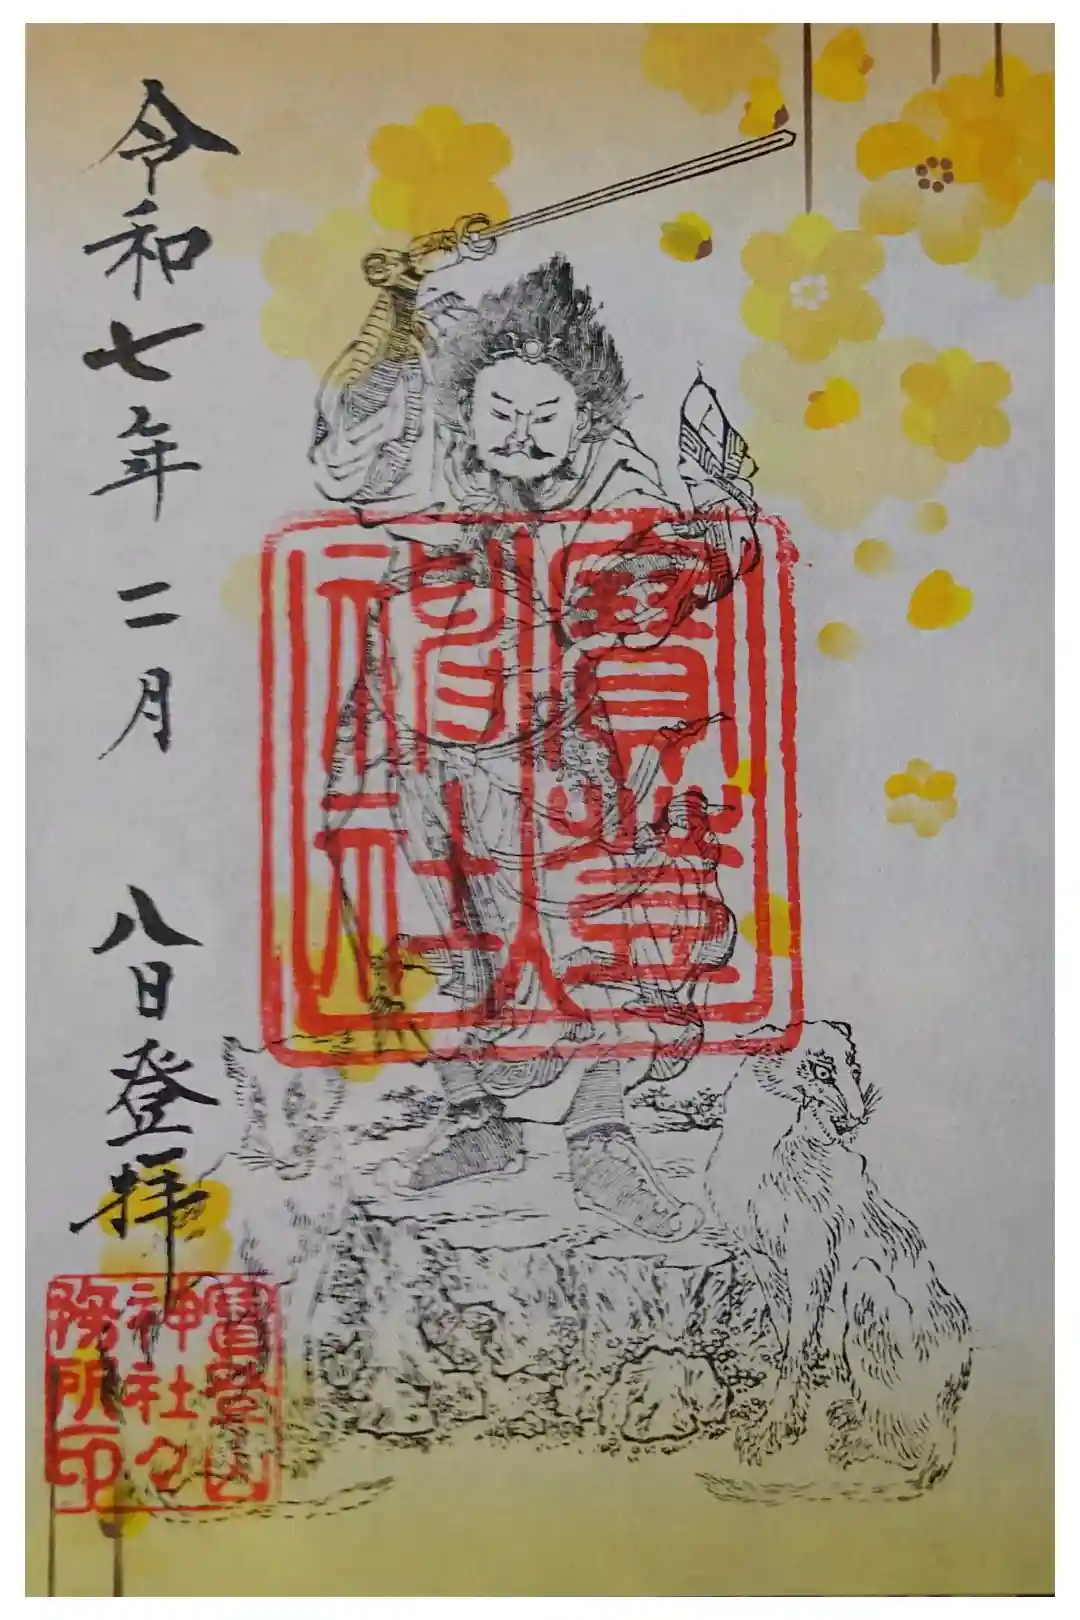 令和七年二月八日登拝
寶登
神社
寶登山
神社
務所印